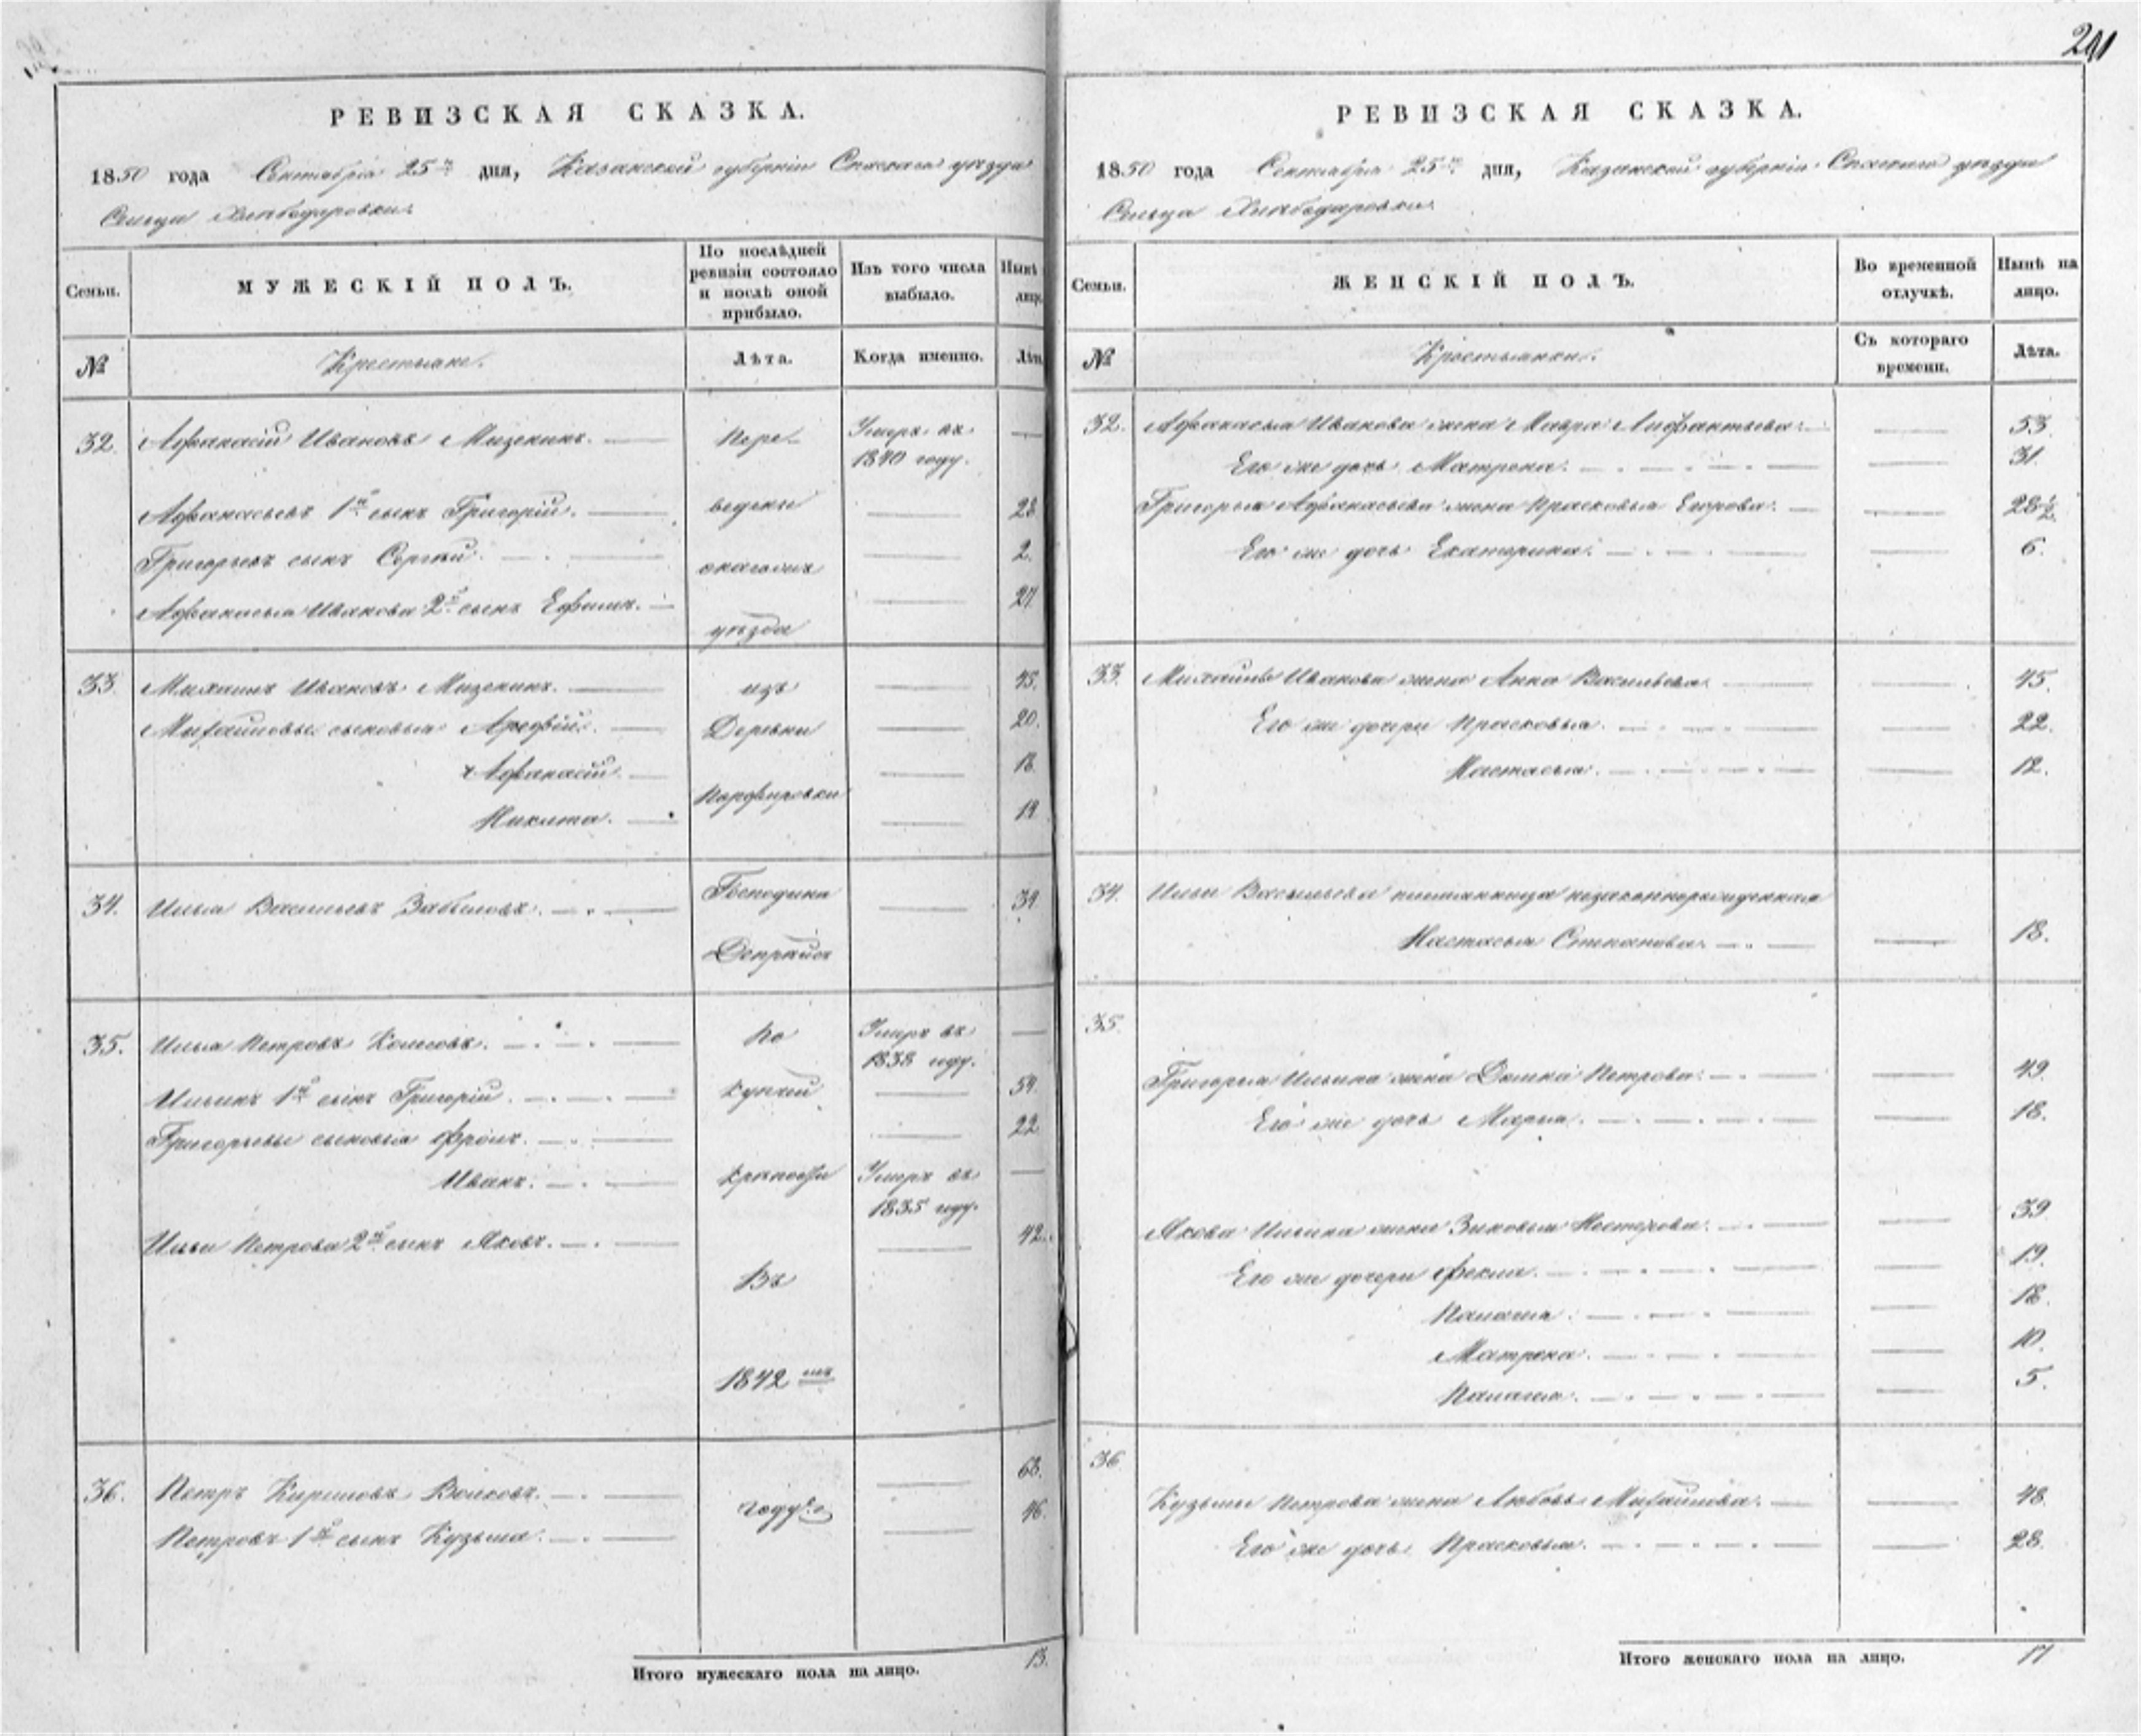 291
РЕВИЗСКАЯ СКАЗКА.
1850 года Сентября 25го дня, Казанской губерніи Спаскаго уѣзда
Сельца Хлѣбодаровки.
Семьи.
МУЖЕСКІЙ ПОЛЪ.
По послѣдней ревизіи состояло и послѣ оной прибыло.
Изъ того числа выбыло.
Нынѣ лицо.
№
Крестьяне.
Лѣта.
Когда именно.
Лѣта
32. Афанасій Ивановъ Мизекинъ. Пере- Умеръ въ 1840 году.
Афанасьевъ 1й сынъ Григорій. ведены 28
Григорьевъ сынъ Сергѣй. 2.
Афанасья Иванова 2й сынъ Ефимъ. уѣзда 27
33. Михаилъ Ивановъ Мизекинъ. изъ 45.
Михайловы сыновья Арефій. Деревни 20.
Афанасій. 18.
Никита. Парфировки 14
34. Илья Васильевъ Забѣловъ. Господина 39.
Депрейсъ
35. Илья Петровъ Колесовъ. По Умеръ въ 1838 году.
Ильинъ 1й сынъ Григорій. купчей 54.
Григорьевы сыновья Фролъ. 22
Иванъ. крѣпости Умеръ въ 1835 году.
Ильи Петрова 2й сынъ Яковъ. 42.
Въ
1842 мъ
36. Петръ Кириловъ Волковъ. 68.
году. 46.
Петровъ 1й сынъ Кузьма.
Итого мужескаго пола на лицо. 13.
РЕВИЗСКАЯ СКАЗКА.
1850 года Сентября 25го дня, Казанской губерніи Спаскаго уѣзда
Сельца Хлѣбодаровки.
Семьи.
ЖЕНСКІЙ ПОЛЪ.
Во временной отлучкѣ.
Нынѣ на лицо.
№
Крестьянки.
Съ котораго времени.
Лѣта.
32. Афанасья Иванова жена Мавра 53.
Его же дочь Матрена. 31.
Григорья Афанасьева жена Прасковья Егорова. 28½
Его же дочь Екатерина. 6.
33. Михайлы Иванова жена Анна Васильева 45.
Его же дочери Прасковья. 22.
Настасья. 12.
34. Ильи Васильева питанница незаконнорожденная
Настасья Степанова. 18.
35.
Григорья Ильина жена Домна Петрова. 49.
Его же дочь Марья. 18.
Якова Ильина жена Зиновья Нестерова. 39
Его же дочери Фекла. 19.
Палагея. 18.
Матрена. 10.
Палагея. 5.
36
Кузьмы Петрова жена Любовь Михайлова. 48.
Его же дочь Прасковья. 28.
Итого женскаго пола на лицо. 17